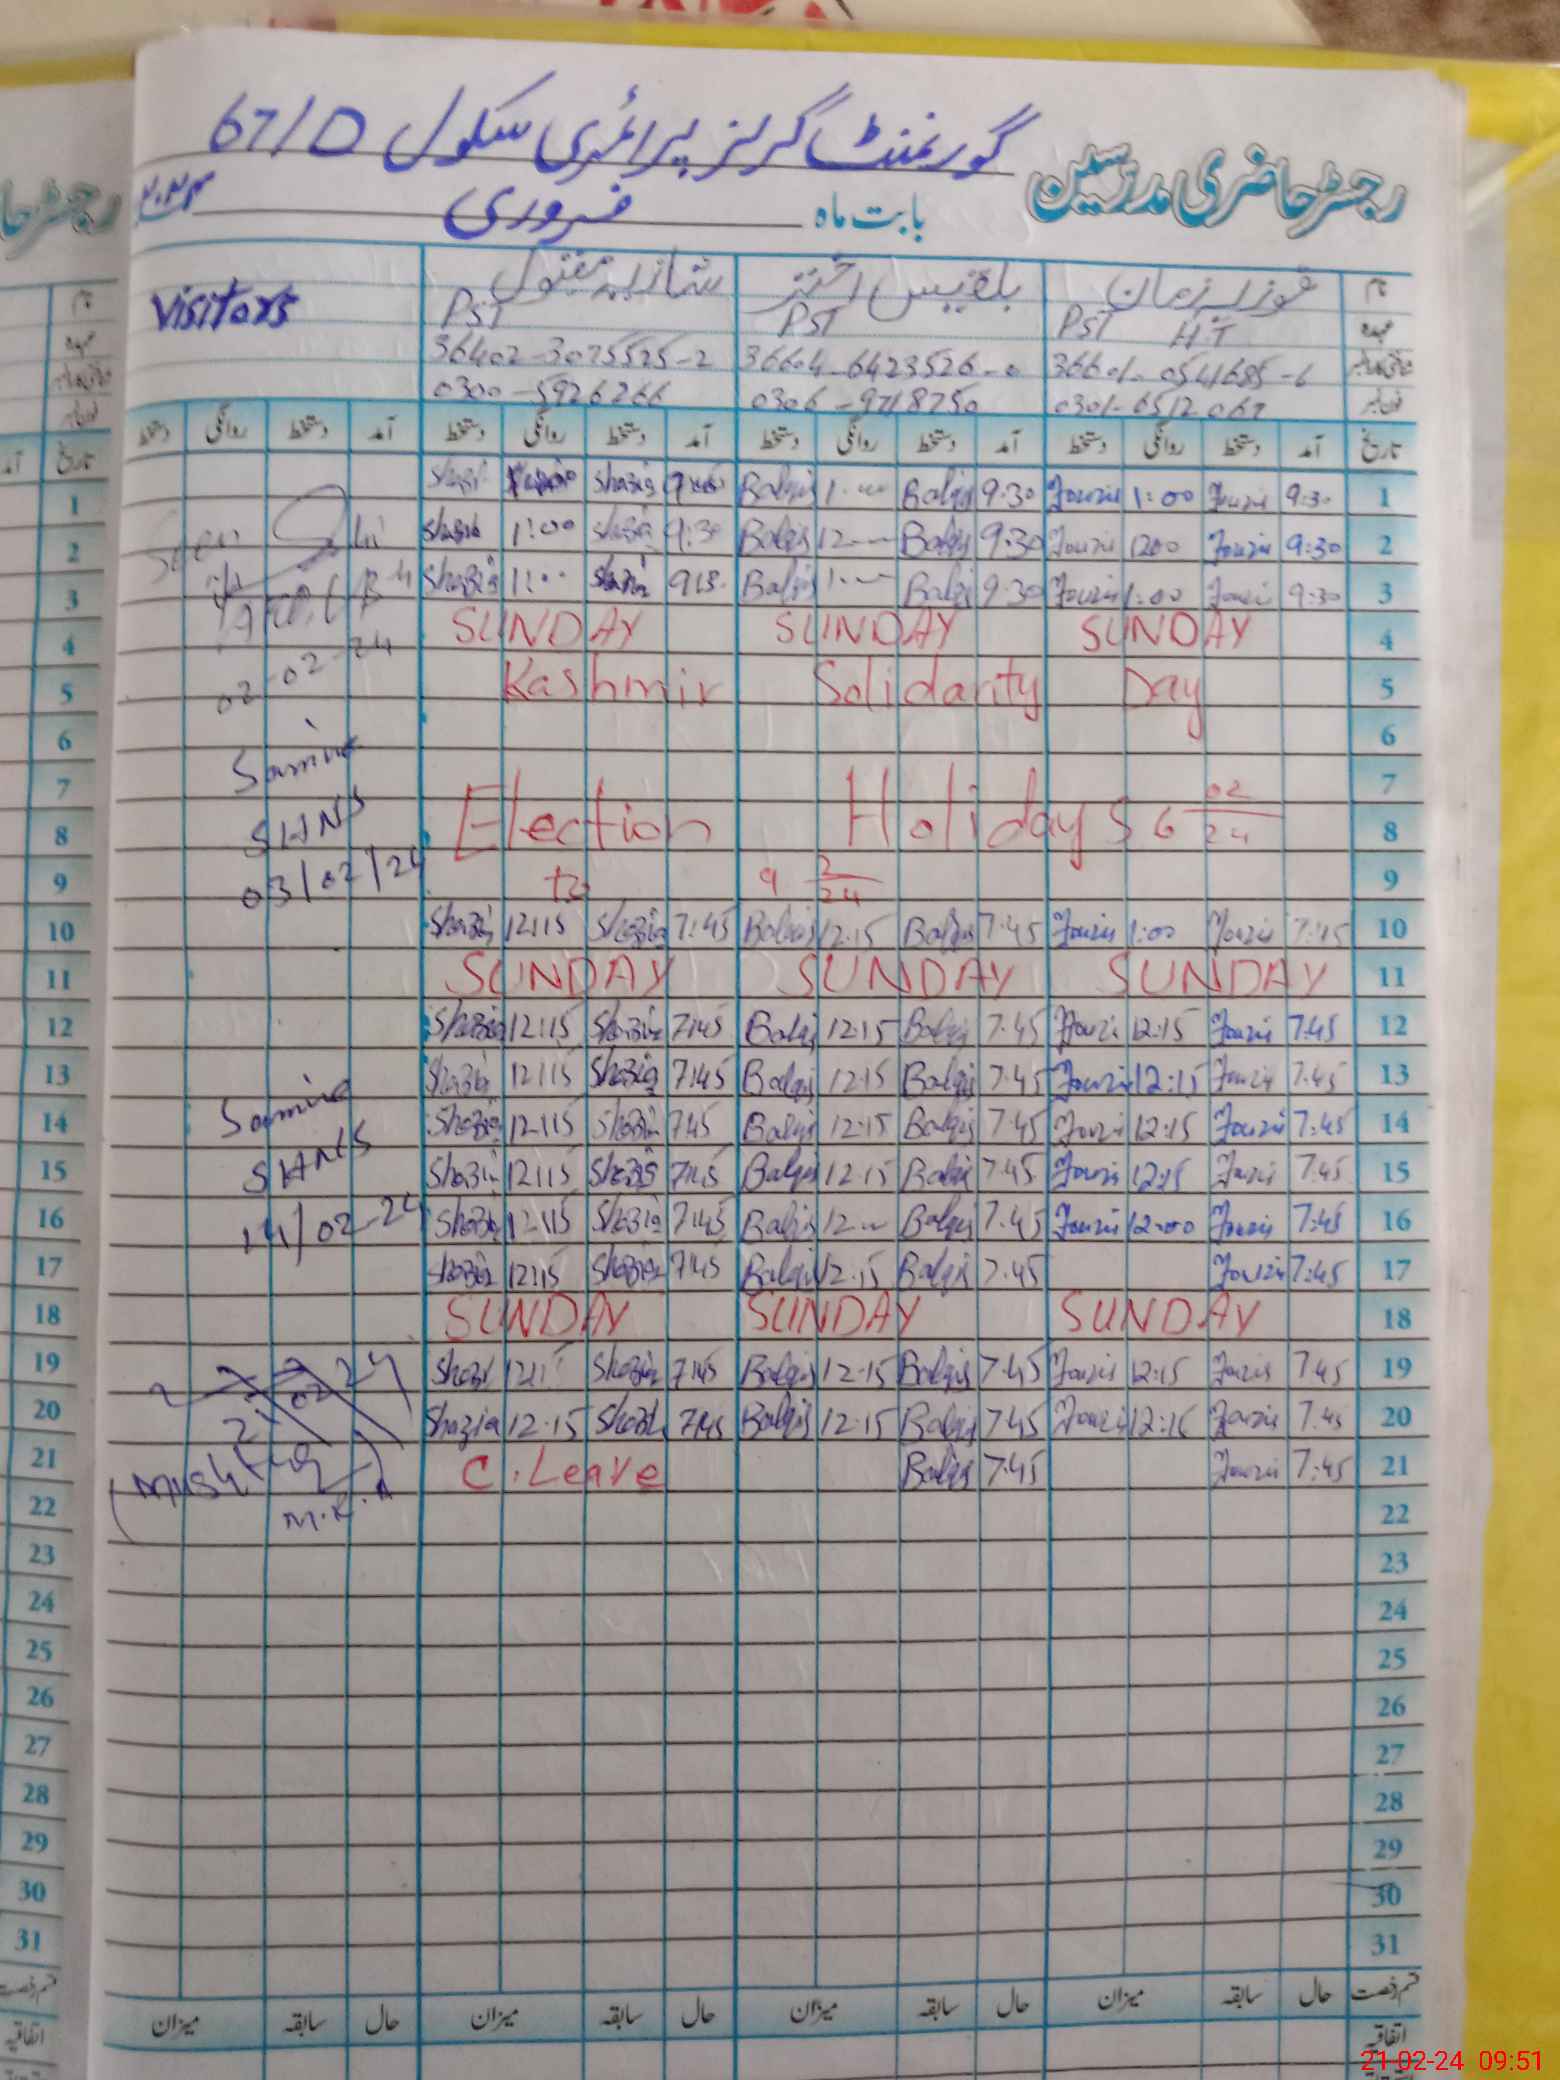 گورنمنٹ گرلز پرائمری سکول 67/D
رجسٹر حاضری مدرسین
بابت ماہ فروری ۲۰۲۴
نام فوزیہ زمان بلقیس اختر شازیہ مقبول Visitors
عہدہ PST H.T PST PST
36601-0541685-6 36604-6423526-0 36402-3075525-2
0301-6512067 0306-9718750 0300-5926266
تاریخ آمد دستخط روانگی دستخط آمد دستخط روانگی دستخط آمد دستخط روانگی دستخط آمد دستخط روانگی دستخط
1 9:30 Fouzia 1:00 Fouzia 9:30 Balqis Balqis Shazia
2 9:30 Fouzia 1200 Fouzia 9:30 Balqis Balqis 9:30 Shazia 1:00 Shazia
3 9:30 Fouzia 1:00 Fouzia 9:30 Balqis Balqis Shazia Shazia
4 SUNDAY SUNDAY SUNDAY
02-02-24
5 Kashmir Solidarity Day
6
Samina
7
8 Election Holidays 6 02/24
SHNS
9 to 9 2/24
03/02/24
10 7:45 Fouzia 1:00 Fouzia 7.45 Balqis 12.15 Balqis 7:45 Shazia 12:15 Shazia
11 SUNDAY SUNDAY SUNDAY
12 7:45 Fouzia 12:15 Fouzia 7.45 Balqis 12.15 Balqis 7:45 Shazia 12:15 Shazia
13 7:45 Fouzia 12:15 Fouzia 7.45 Balqis 12.15 Balqis 7:45 Shazia 12:15 Shazia
Samina
14 7:45 Fouzia 12:15 Fouzia 7.45 Balqis 12.15 Balqis 7:45 Shazia 12:15 Shazia
SHNS
15 7:45 Fouzia 12:15 Fouzia 7.45 Balqis 12.15 Balqis 7:45 Shazia 12:15 Shazia
14/02-24
16 7:45 Fouzia 12:00 Fouzia 7.45 Balqis Balqis 7:45 Shazia 12:15 Shazia
17 7:45 Fouzia 7.45 Balqis 12.15 Balqis 7:45 Shazia 12:15 Shazia
18 SUNDAY SUNDAY SUNDAY
19 7:45 Fouzia 12:15 Fouzia 7.45 Balqis 12.15 Balqis 7:45 Shazia Shazia
20 7:45 Fouzia Fouzia 7.45 Balqis 12.15 Balqis 7:45 Shazia 12:15 Shazia
21 7:45 Fouzia 7.45 Balqis C. Leave
22
23
24
25
26
27
28
29
30
31
قسم رخصت حال سابقہ میزان حال سابقہ میزان حال سابقہ میزان حال سابقہ میزان
اتفاقیہ
1
2
3
4
5
6
7
8
9
10
11
12
13
14
15
16
17
18
19
20
21
22
23
24
25
26
27
28
29
30
31
21-02-24 09:51